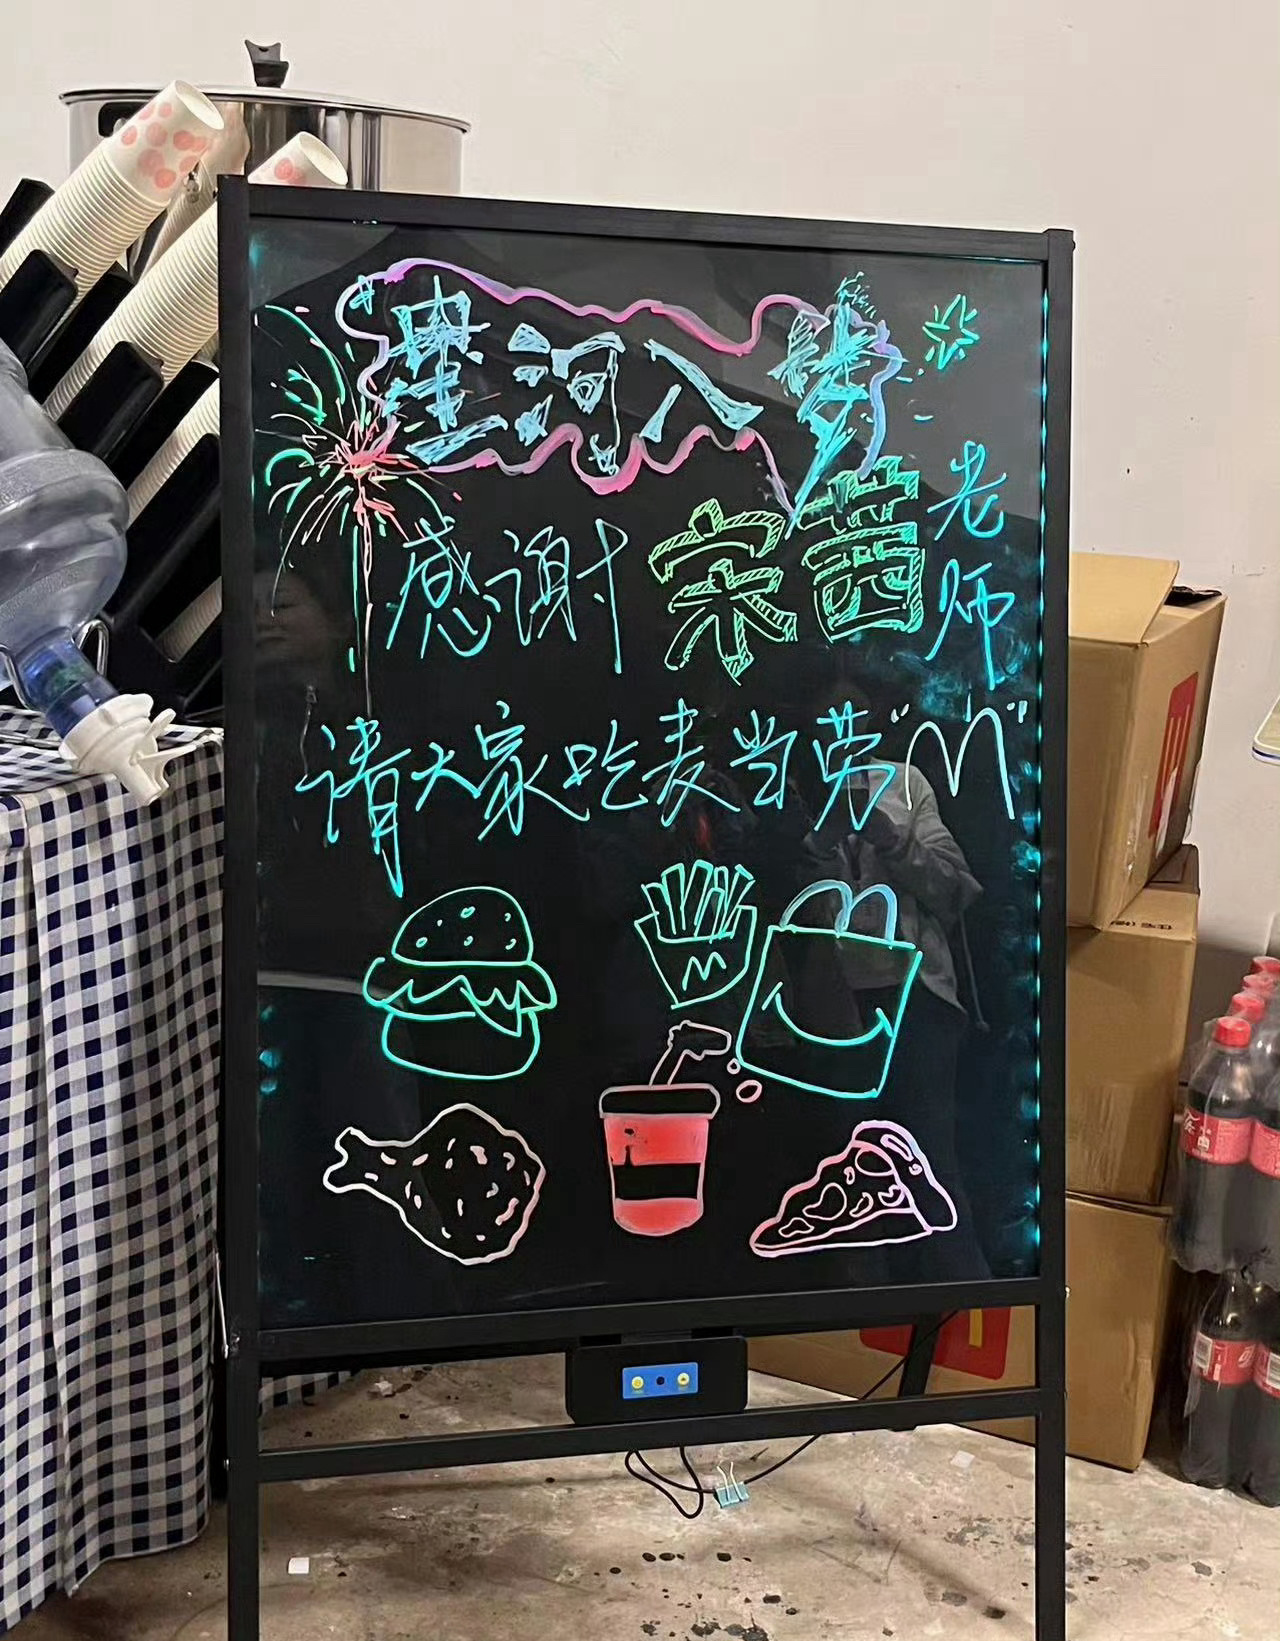 星河入梦
感谢宋茜老师
请大家吃麦当劳"M"
M